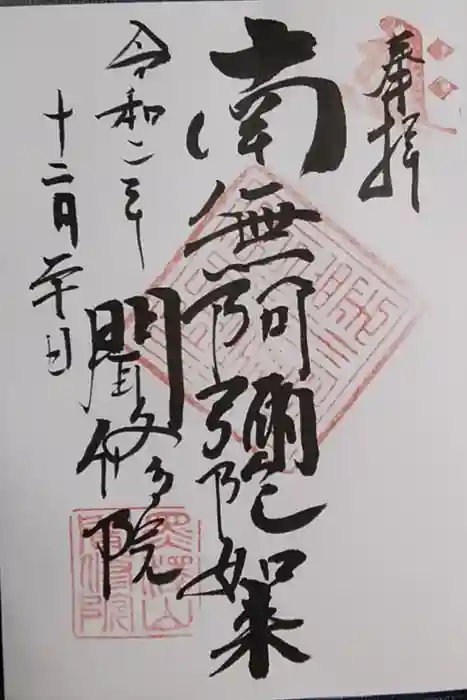 奉拝
南無阿弥陀如来
令和二年
十二月廿日
閻修院